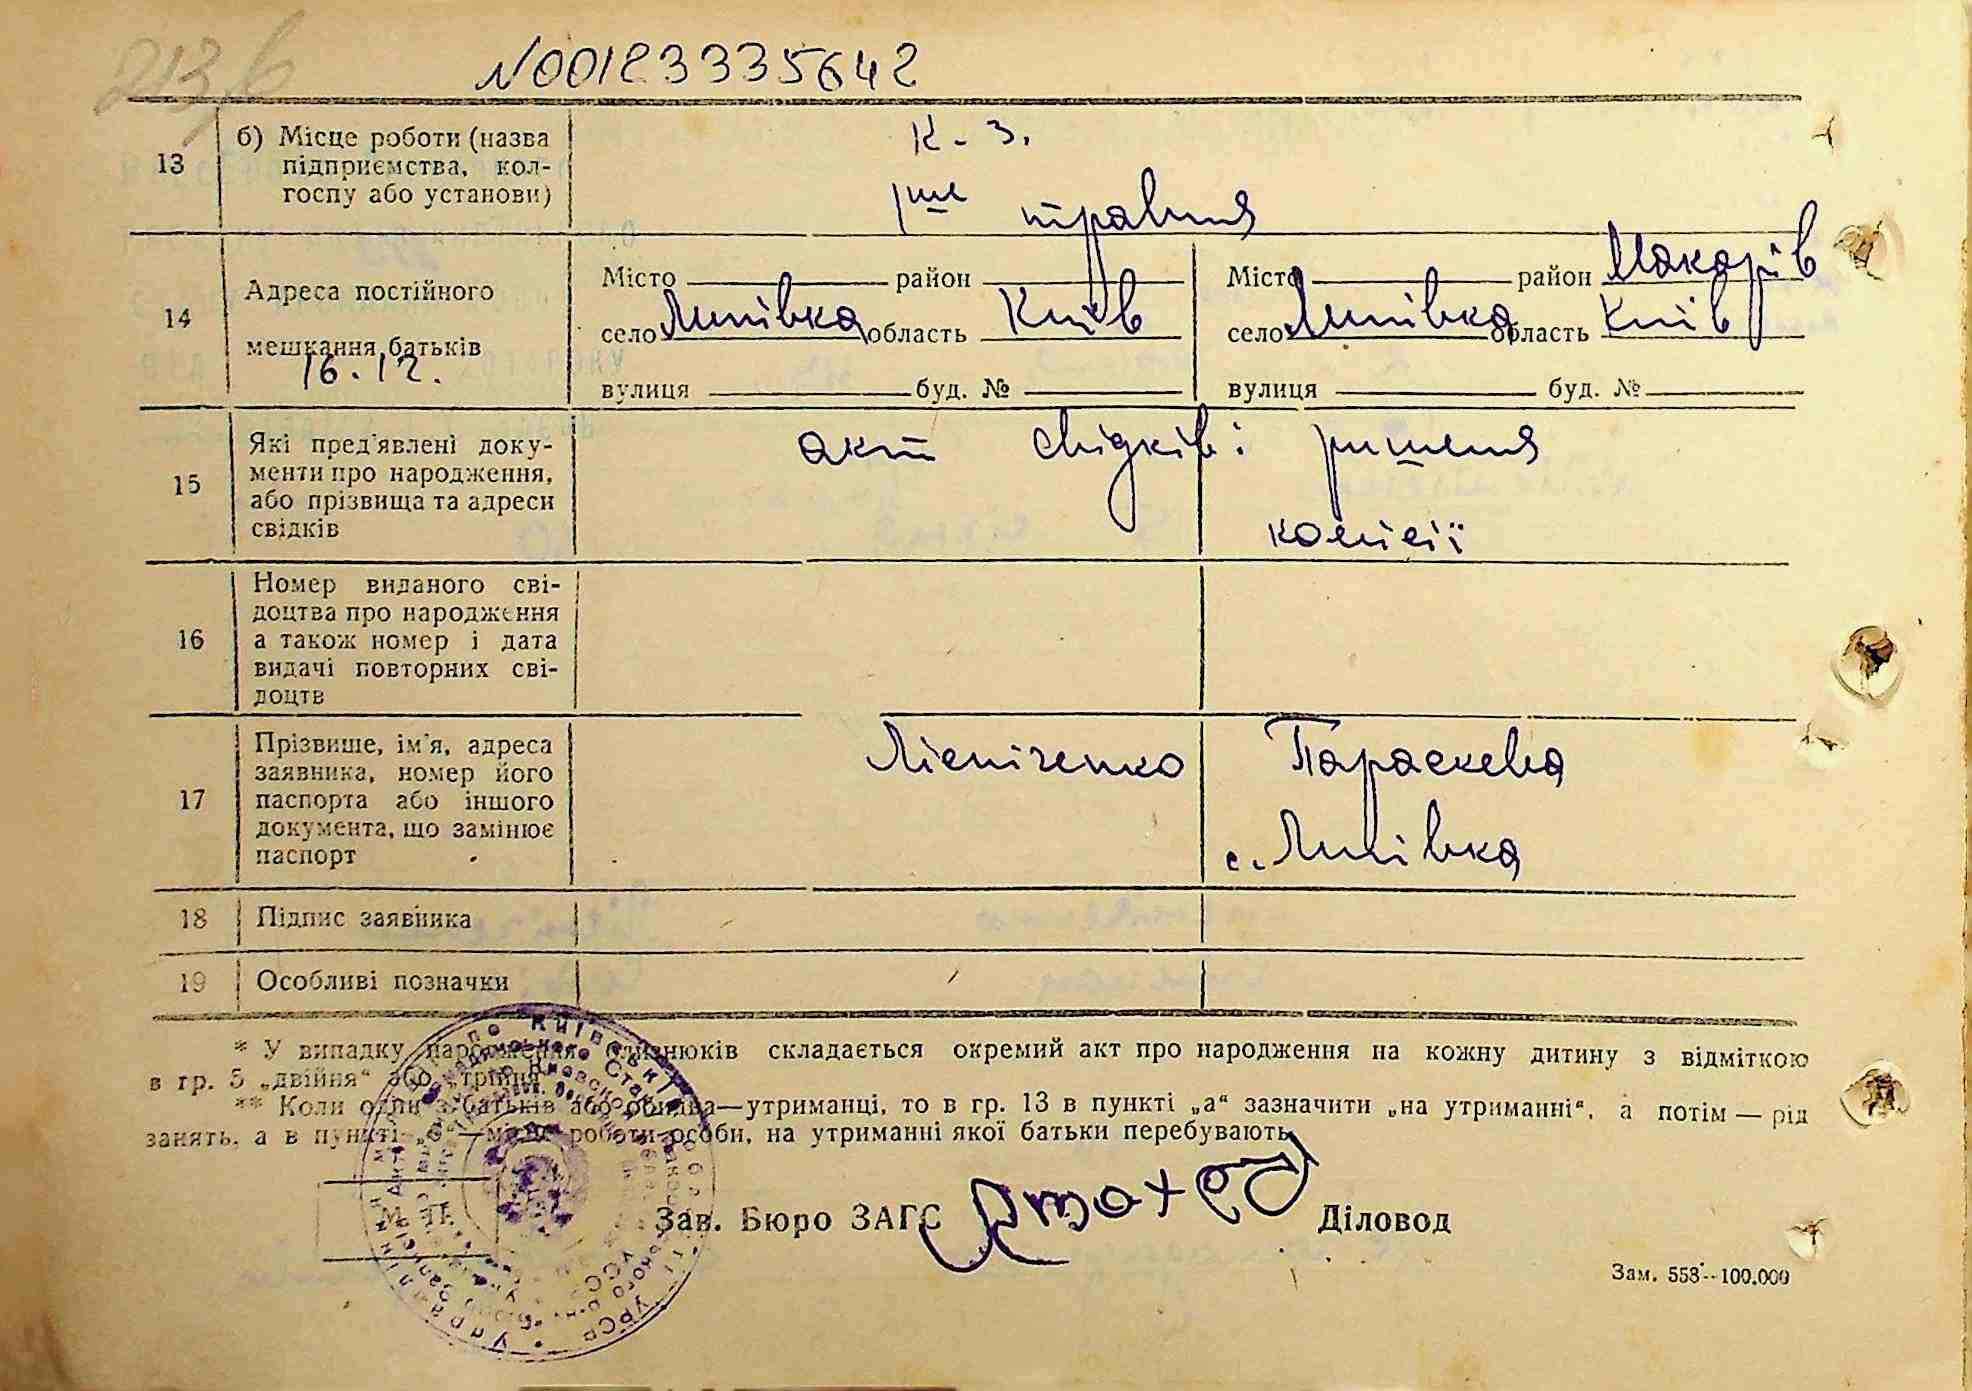 213,6
N001233335642
13
б) Місце роботи (назва
підприємства, кол-
госпу або установи)
К-з.
1ше травня
14
Адреса постійного
мешкання батьків
16.12.
Місто район
село Липівка область Київ
вулиця буд. №
Місто район Макарів
село Липівка область Київ
вулиця буд. №
15
Які пред'явлені доку-
менти про народження,
або прізвища та адреси
свідків
акт свідків і рішення
комісії
16
Номер виданого сві-
доцтва про народження
а також номер і дата
видачі повторних сві-
доцтв
17
Прізвище, ім'я, адреса
заявника, номер його
паспорта або іншого
документа, що замінює
паспорт
Лісніченко Параскева
с. Липівка
18
Підпис заявника
19
Особливі позначки
* У випадку народження близнюків складається окремий акт про народження на кожну дитину з відміткою
в гр. 5 „двійня“ або „трійня“
** Коли один з батьків або обидва—утриманці, то в гр. 13 в пункті „а“ зазначити „на утриманні“, а потім — рід
занять, а в пункті „б“—місце роботи особи, на утриманні якої батьки перебувають
М. П.
Зав. Бюро ЗАГС Діловод
Зам. 558—100.000